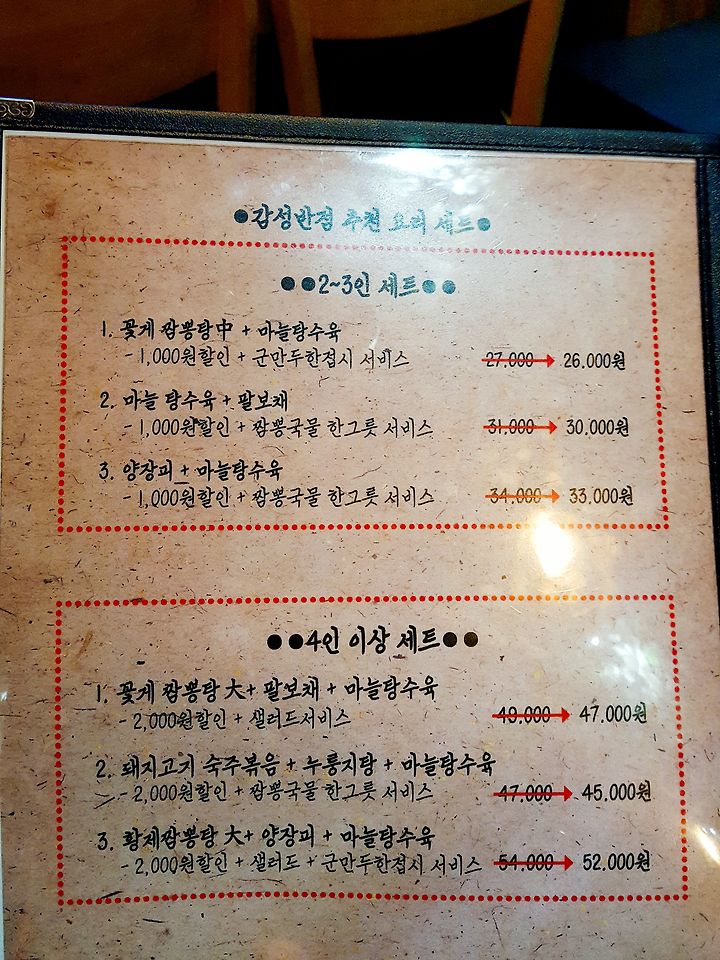 ●감성반점 추천 요리 세트●
●●2~3인 세트●●
1. 꽃게 짬뽕탕中 + 마늘탕수육
- 1,000원할인 + 군만두한접시 서비스 27,000 → 26.000원
2. 마늘 탕수육 + 팔보채
- 1,000원할인 + 짬뽕국물 한그릇 서비스 31,000 → 30.000원
3. 양장피 + 마늘탕수육
- 1,000원할인 + 짬뽕국물 한그릇 서비스 34,000 → 33.000원
●●4인 이상 세트●●
1. 꽃게 짬뽕탕 大+ 팔보채 + 마늘탕수육
- 2,000원할인 + 샐러드서비스 49.000 → 47.000원
2. 돼지고기 숙주볶음 + 누룽지탕 + 마늘탕수육
- 2,000원할인 + 짬뽕국물 한그릇 서비스 47.000 → 45.000원
3. 황제짬뽕탕 大+ 양장피 + 마늘탕수육
- 2,000원할인 + 샐러드 + 군만두한접시 서비스 54.000 → 52.000원